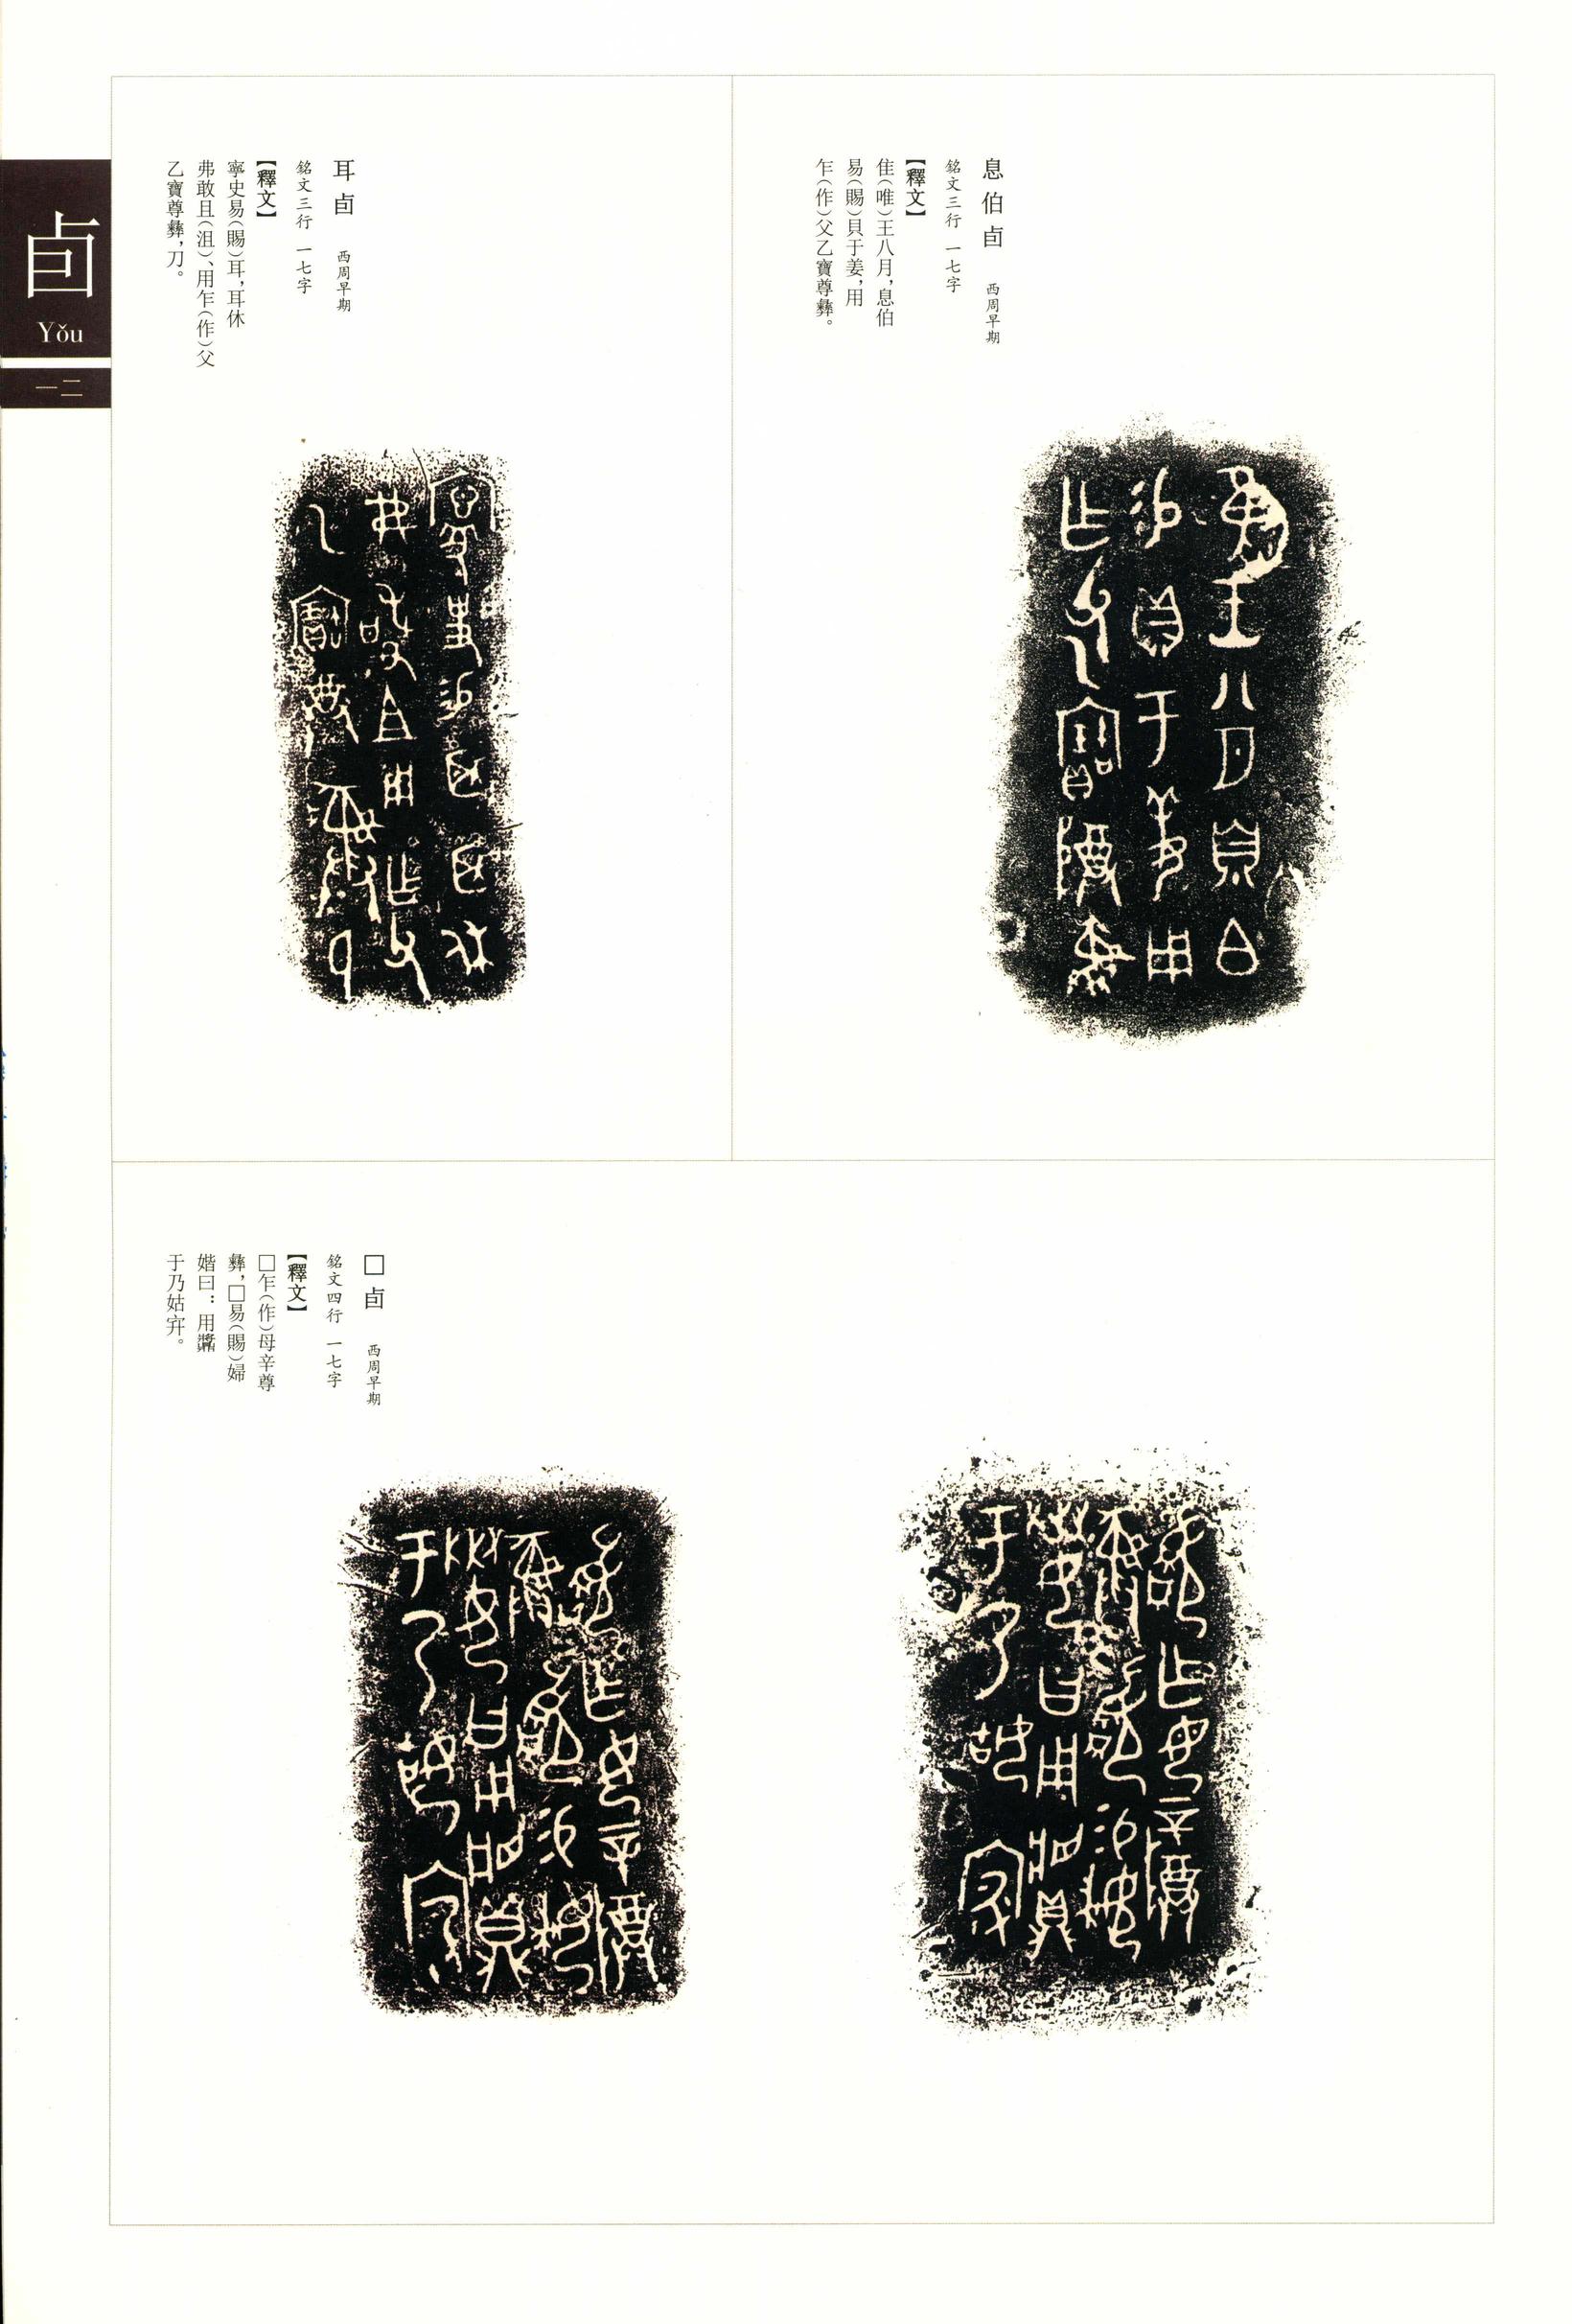 卣
Yǒu
一二
息伯卣 西周早期
銘文三行 一七字
【釋文】
隹（唯）王八月，息伯
易（賜）貝于姜，用
乍（作）父乙寶尊彝。
耳卣 西周早期
銘文三行 一七字
【釋文】
寧史易（賜）耳，耳休
弗敢且（沮）、用乍（作）父
乙寶尊彝，刀。
□卣 西周早期
銘文四行 一七字
【釋文】
□乍（作）母辛尊
彝，□易（賜）婦
婚曰：用
于乃姑宑。